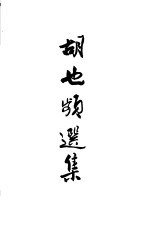 胡也频選集